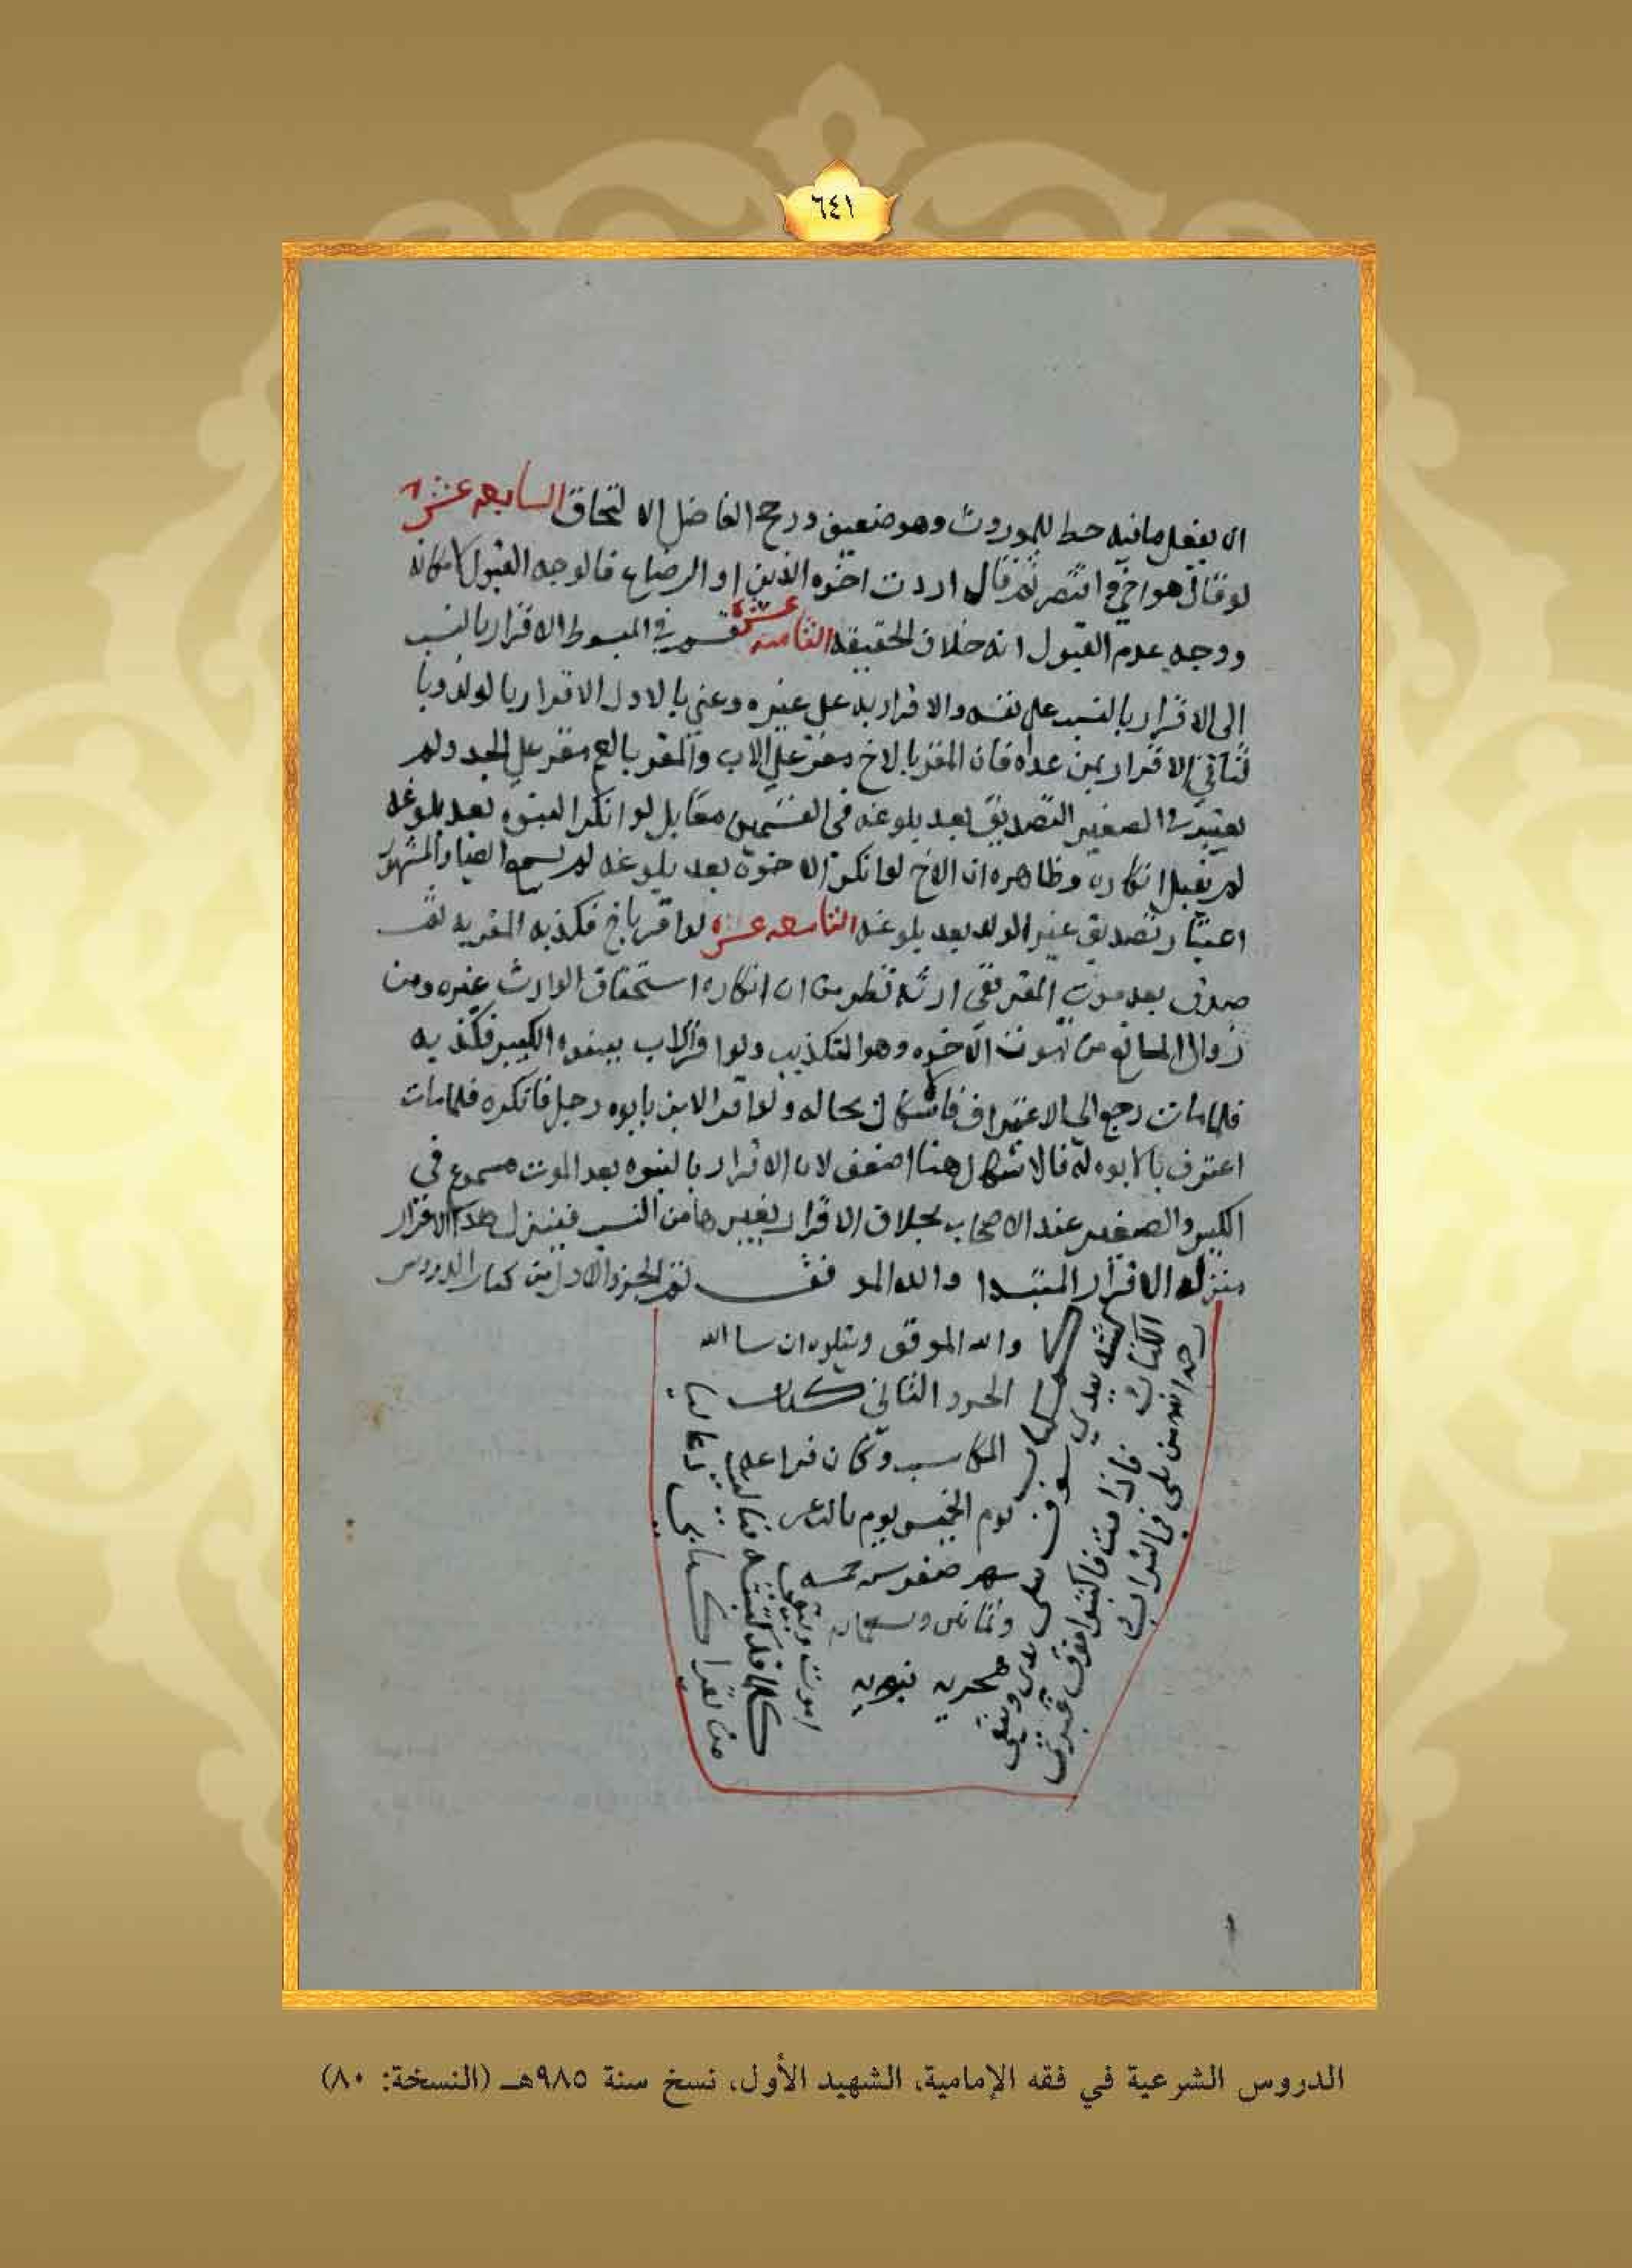 ٦٤١
ان يفعل ما فيه حط للموروث وهو ضعيف ورجح الفاضل الالتحاق السابعه عشر
لو قال هو اخي ثم قال اردت اخوه الدين او الرضاع فالوجه القبول لامكانه
ووجه عدم القبول انه خلاف الحقيقه الثامنه عشره قسم في المبسوط الاقرار بالنسب
الى الاقرار بالنسب على نفسه والاقرار به على غيره وعنى بالاول الاقرار بالولد وبا
لثاني الاقرار بمن عداه فان المقر بالاخ مقر على الاب والمقر بالعم مقر على الجد ولم
يعتبر في الصغير التصديق بعد بلوغه في القسمين بل لو انكر البنوه بعد بلوغه
لم يقبل انكاره وظاهره ان الاخ لو انكر الاخوه بعد بلوغه لم يسمع ايضا والمشهور
اعتبار تصديق غير الولد بعد بلوغه التاسعه عشره لو اقر باخ فكذبه المقر به ثم
صدق بعد موت المقر ففي ارثه نظر من ان انكاره استحقاق الوارث غيره ومن
زوال المانع من ثبوت الاخوه وهو التكذيب ولو اقر الاب ببنوه الكبير فكذبه
فلما مات رجع الى الاعتراف فالاشكال بحاله ولو اقر الابن بابوه رجل فانكره فلما مات
اعترف بالابوه له فالاشكال هنا اضعف لان الاقرار بالبنوه بعد الموت مسموع في
الكبير والصغير عند الاصحاب بخلاف الاقرار بغيرها من النسب فينزل هذا الاقرار
منزله الاقرار المبتدا والله الموفق تم الجزو الاول من كتاب الدروس
والله الموفق ويتلوه ان سا الله
الجزو الثاني كتاب
المكاسب وكان فراغه
يوم الخميس يوم
شهر صفر سنه خمسه
وثمانين وتسعمايه
هجريه نبويه
الكتاب فاذا مت فاكتبوا فوق قبري
رحم الله من بكى في التراب
اموت ويبقى كلما قد كتبته فيا ليت
من يقرا كتابي دعا ليا
الدروس الشرعية في فقه الإمامية، الشهيد الأول، نسخ سنة ٩٨٥هـ (النسخة: ٨٠)